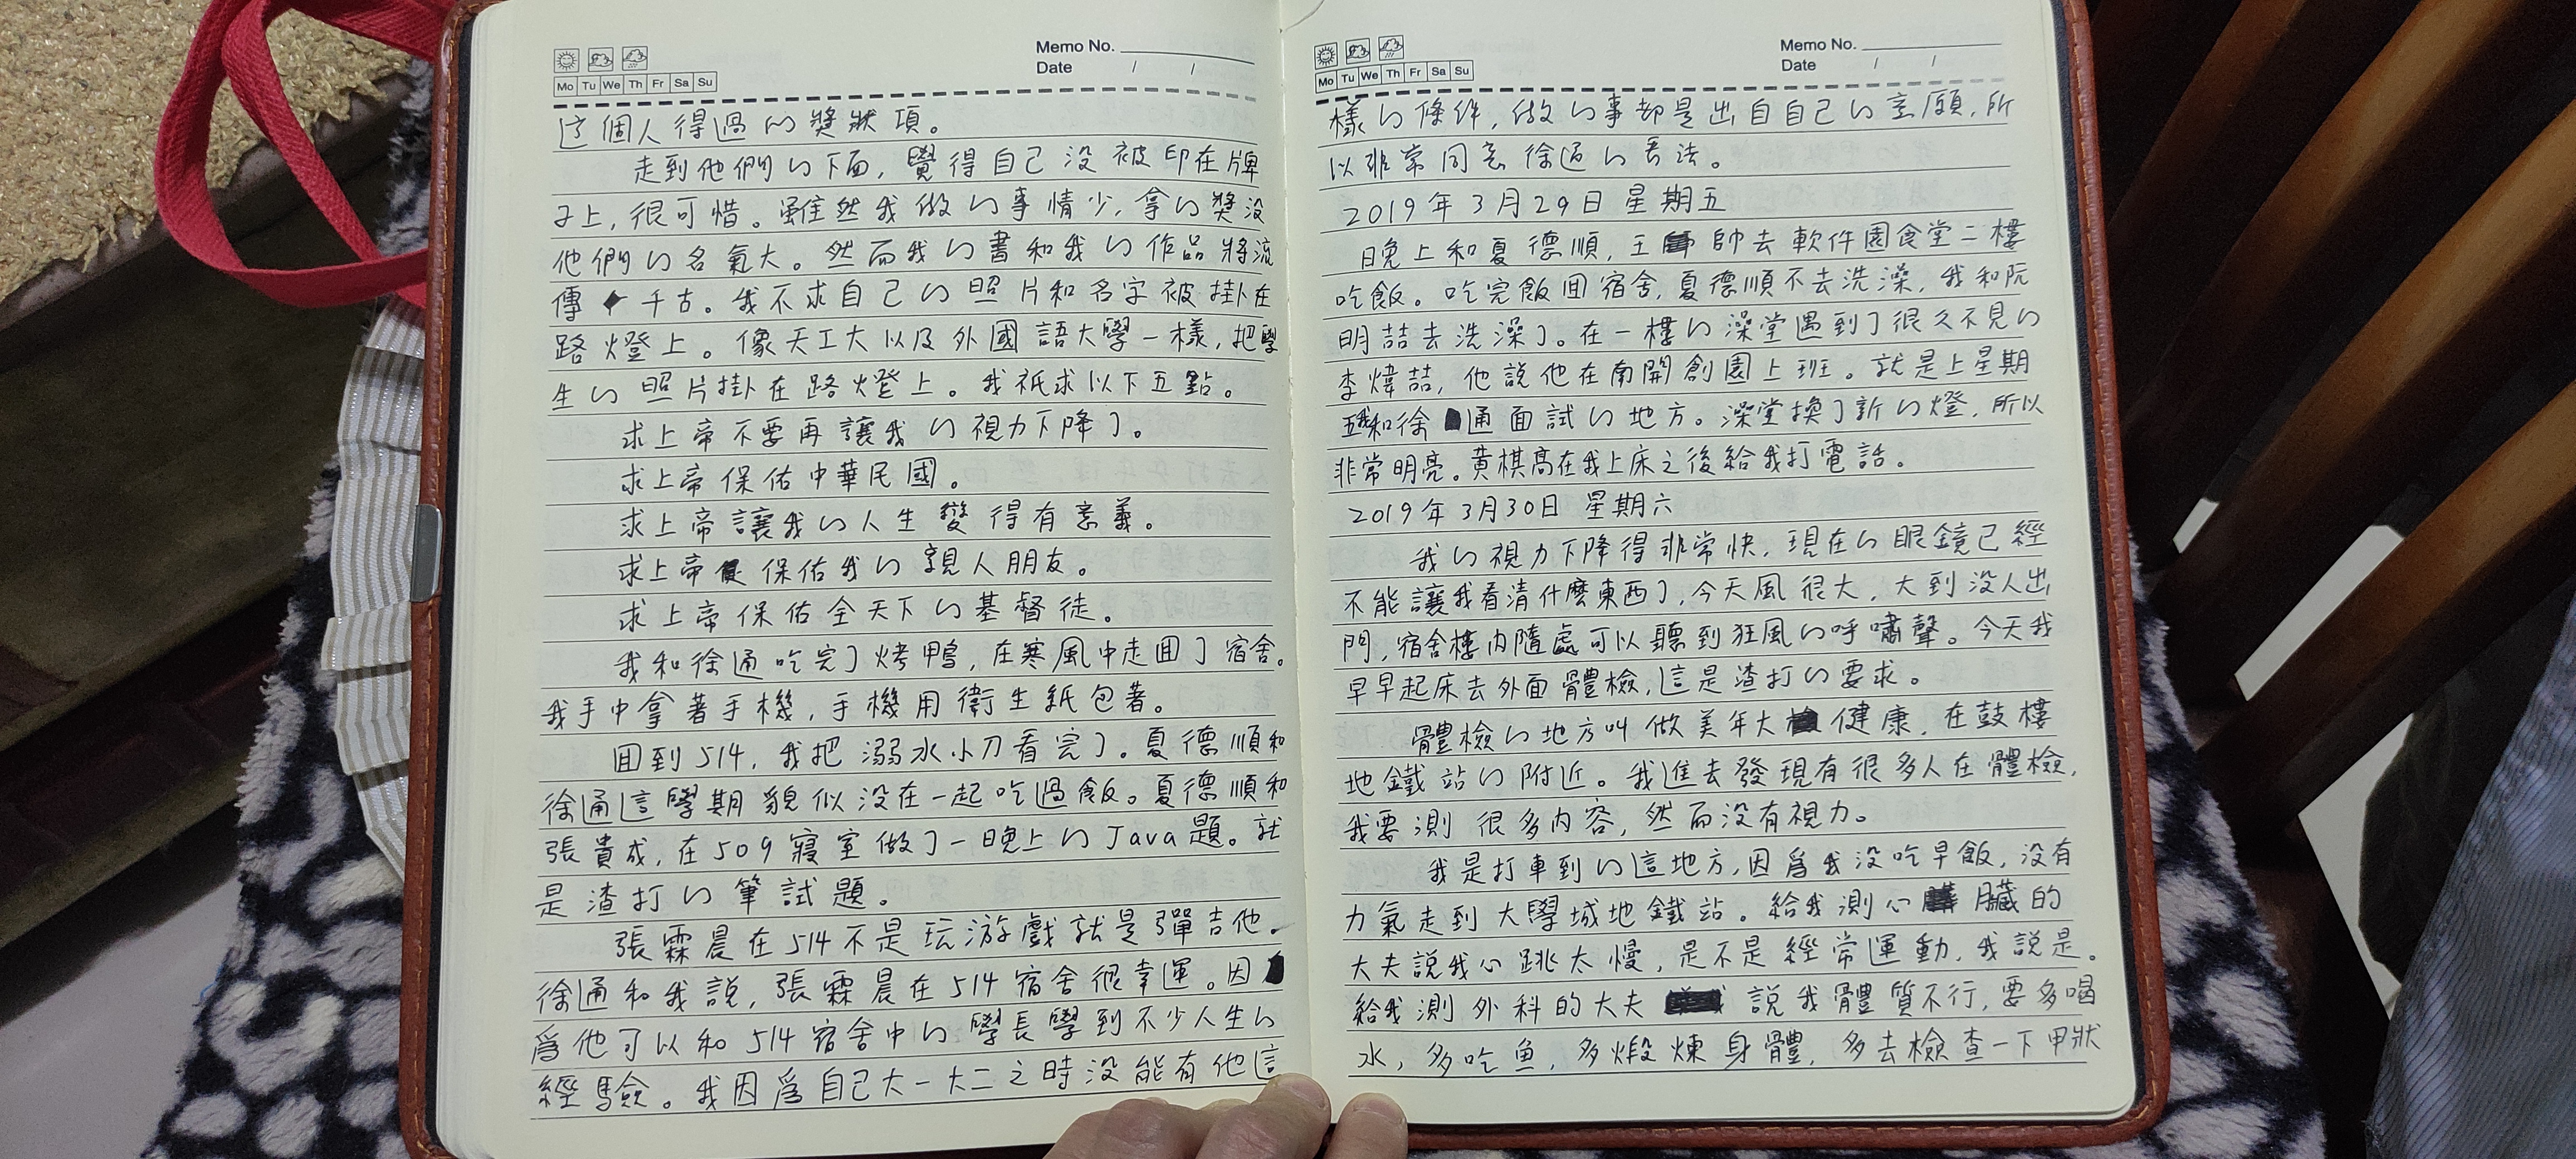 Memo No.
Date / /
Mo Tu We Th Fr Sa Su
這個人得過的獎狀項。
走到他們的下面，覺得自己沒被印在牌
子上，很可惜。雖然我做的事情少，拿的獎沒
他們的名氣大。然而我的書和我的作品將流
傳千古。我不求自己的照片和名字被掛在
路燈上。像天工大以及外國語大學一樣，把學
生的照片掛在路燈上。我祇求以下五點。
求上帝不要再讓我的視力下降了。
求上帝保佑中華民國。
求上帝讓我的人生變得有意義。
求上帝保佑我的親人朋友。
求上帝保佑全天下的基督徒。
我和徐通吃完了烤鴨，在寒風中走回了宿舍。
我手中拿著手機，手機用衛生紙包著。
回到514，我把溺水小刀看完了。夏德順和
徐通這學期貌似沒在一起吃過飯。夏德順和
張貴成，在509寢室做了一晚上的Java題。就
是渣打的筆試題。
張霖晨在514不是玩游戲就是彈吉他。
徐通和我說，張霖晨在514宿舍很幸運。因
爲他可以和514宿舍中的學長學到不少人生的
經驗。我因爲自己大一大二之時沒能有他這
Memo No.
Date / /
Mo Tu We Th Fr Sa Su
樣的條件，做的事却是出自自己的意願，所
以非常同意徐通的看法。
2019年3月29日 星期五
晚上和夏德順，王帥去軟件園食堂二樓
吃飯。吃完飯回宿舍，夏德順不去洗澡，我和阮
明喆去洗澡了。在一樓的澡堂遇到了很久不見的
李煒喆，他說他在南開創園上班。就是上星期
五我和徐通面試的地方。澡堂換了新的燈，所以
非常明亮。黄棋高在我上床之後給我打電話。
2019年3月30日 星期六
我的視力下降得非常快，現在的眼鏡已經
不能讓我看清什麼東西了，今天風很大，大到沒人出
門，宿舍樓内隨處可以聽到狂風的呼嘯聲。今天我
早早起床去外面體檢，這是渣打的要求。
體檢的地方叫做美年大健康，在鼓樓
地鐵站的附近。我進去發現有很多人在體檢，
我要測很多内容，然而沒有視力。
我是打車到的這地方，因爲我沒吃早飯，沒有
力氣走到大學城地鐵站。給我測心臟的
大夫說我心跳太慢，是不是經常運動，我說是。
給我測外科的大夫說我體質不行，要多喝
水，多吃魚，多煅煉身體，多去檢查一下甲狀